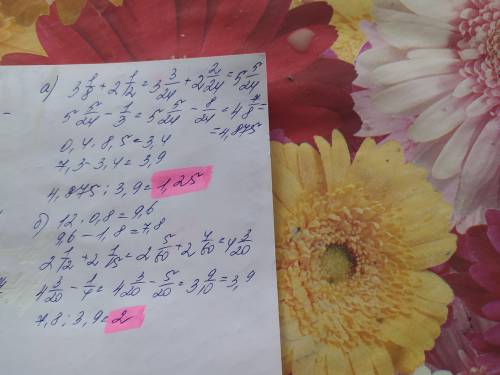 а) 3 1/8 + 2 1/12 = 3 3/24 + 2 2/24 = 5 5/24
5 5/24 - 1/3 = 5 5/24 - 8/24 = 4 7/8 =
= 4,875
0,4 · 8,5 = 3,4
7,3 - 3,4 = 3,9
4,875 : 3,9 = 1,25
б) 12 · 0,8 = 9,6
9,6 - 1,8 = 7,8
2 1/12 + 2 1/15 = 2 5/60 + 2 4/60 = 4 3/20
4 3/20 - 1/4 = 4 3/20 - 5/20 = 3 9/10 = 3,9
7,8 : 3,9 = 2